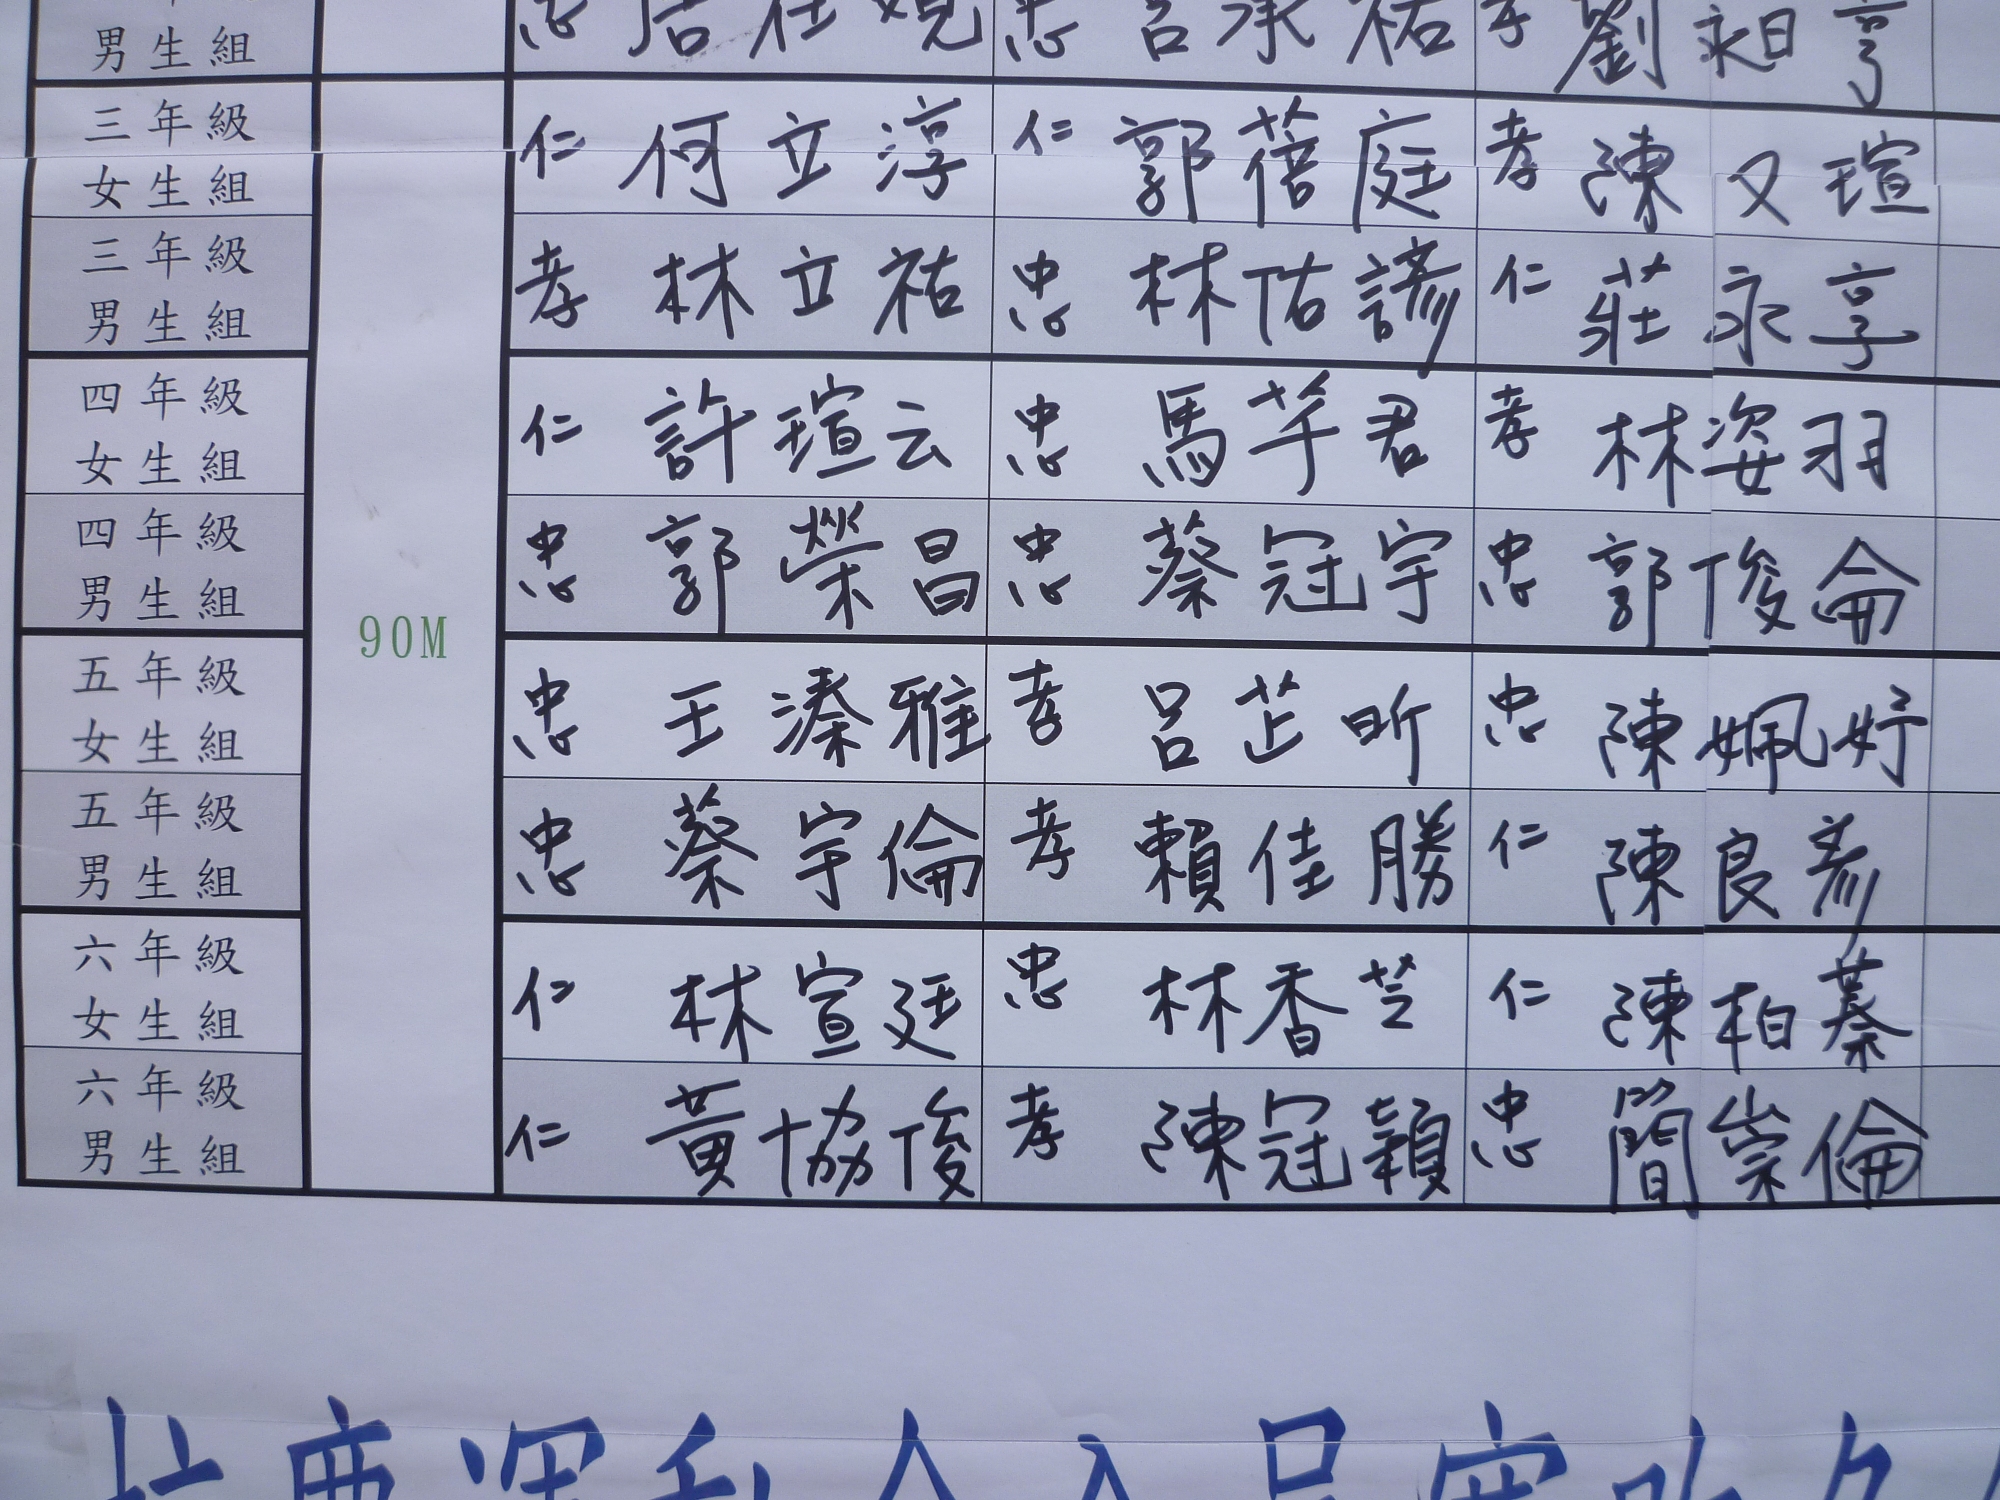 男生組 劉永昌亨
三年級
女生組
仁 何立淳 仁 郭蓓庭 孝 陳又瑄
三年級
男生組
孝 林立祐 忠 林佑諺 仁 莊永享
四年級
女生組
仁 許瑄云 忠 馬芊君 孝 林姿羽
四年級
男生組
忠 郭榮昌 忠 蔡冠宇 忠 郭俊侖
90M
五年級
女生組
忠 王溱雅 孝 呂芷昕 忠 陳姵妤
五年級
男生組
忠 蔡宇倫 孝 賴佳勝 仁 陳良彥
六年級
女生組
仁 林宣廷 忠 林香芝 仁 陳柏蓁
六年級
男生組
仁 黃協俊 孝 陳冠穎 忠 簡崇倫